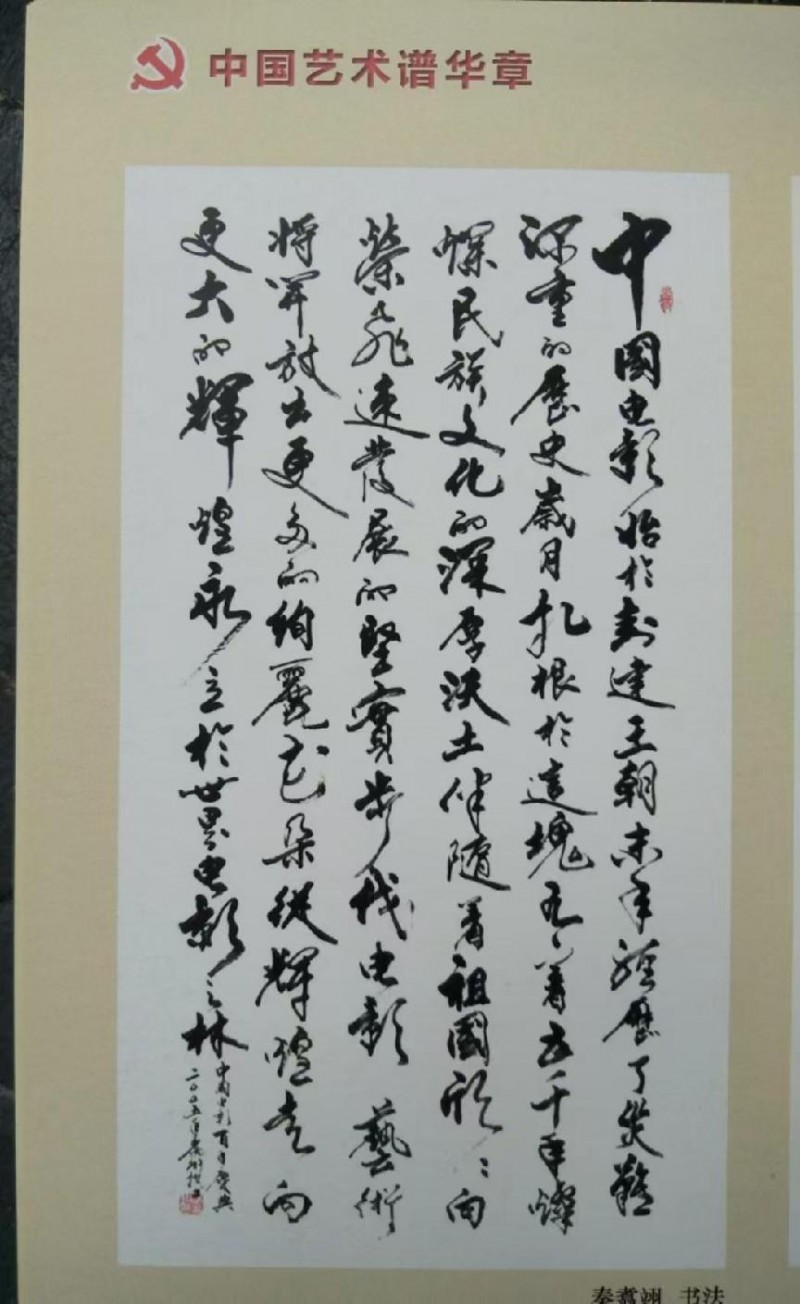 中国艺术谱华章
中國电影始於封建王朝末年經歷了災難
深重的歷史歲月扎根於這塊有着五千年燦
爛民族文化的深厚沃土伴随着祖國欣欣向
榮飛速發展的堅實步伐电影藝術
将开放出更多的绚麗花朵從輝煌走向
更大的輝煌永立於世界电影之林
中国电影百年慶典
二〇〇五年
秦耄翊 书法